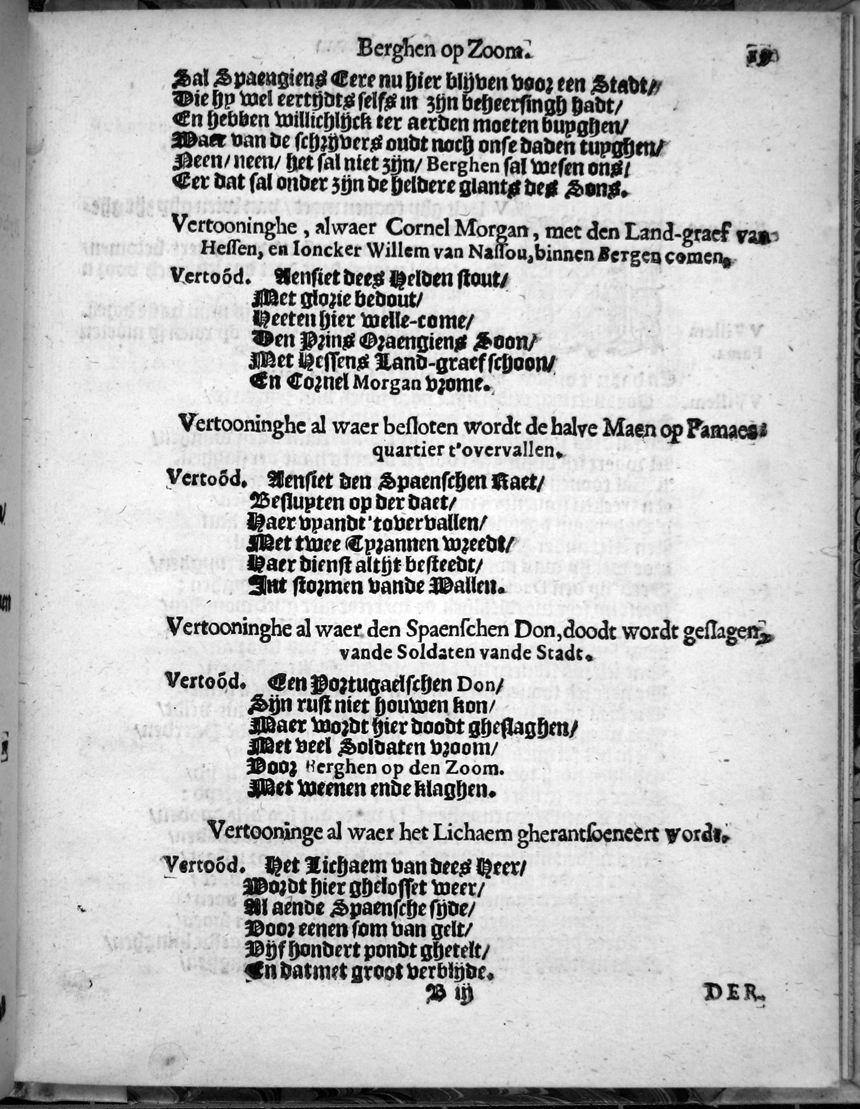 Berghen op Zoom.
19
Sal Spaengiens Eere nu hier blijven voor een Stadt/
Die hy wel eertijdts selfs in zijn beheersingh hadt/
En hebben willichlijck ter aerden moeten buyghen/
Waer van de schrijvers oudt noch onse daden tuyghen/
Neen/ neen/ het sal niet zijn/ Berghen sal wesen ons/
Eer dat sal onder zijn de heldere glants des Sons.
Vertooninghe, alwaer Cornel Morgan, met den Land-graef van
Hessen, en Ioncker Willem van Nassou, binnen Bergen comen.
Vertoöd. Aensiet dees Helden stout/
Met glorie bedout/
Heeten hier welle-come/
Den Prins Oraengiens Soon/
Met Hessens Land-graef schoon/
En Cornel Morgan vrome.
Vertooninghe al waer besloten wordt de halve Maen op Famaes
quartier t'overvallen.
Vertoöd. Aensiet den Spaenschen Raet/
Besluyten op der daet/
Haer vyandt 'tovervallen/
Met twee Tyrannen wreedt/
Haer dienst altijt besteedt/
Int stormen vande Wallen.
Vertooninghe al waer den Spaenschen Don, doodt wordt geslagen,
vande Soldaten vande Stadt.
Vertoöd. Een Portugaelschen Don/
Sijn rust niet houwen kon/
Maer wordt hier doodt gheslaghen/
Met veel Soldaten vroom/
Voor Berghen op den Zoom.
Met weenen ende klaghen.
Vertooninge al waer het Lichaem gherantsoeneert wordt.
Vertoöd. Het Lichaem van dees Heer/
Wordt hier ghelosset weer/
Al aende Spaensche sijde/
Door eenen som van gelt/
Vijf hondert pondt ghetelt/
En dat met groot verblijde.
B iij
DER.